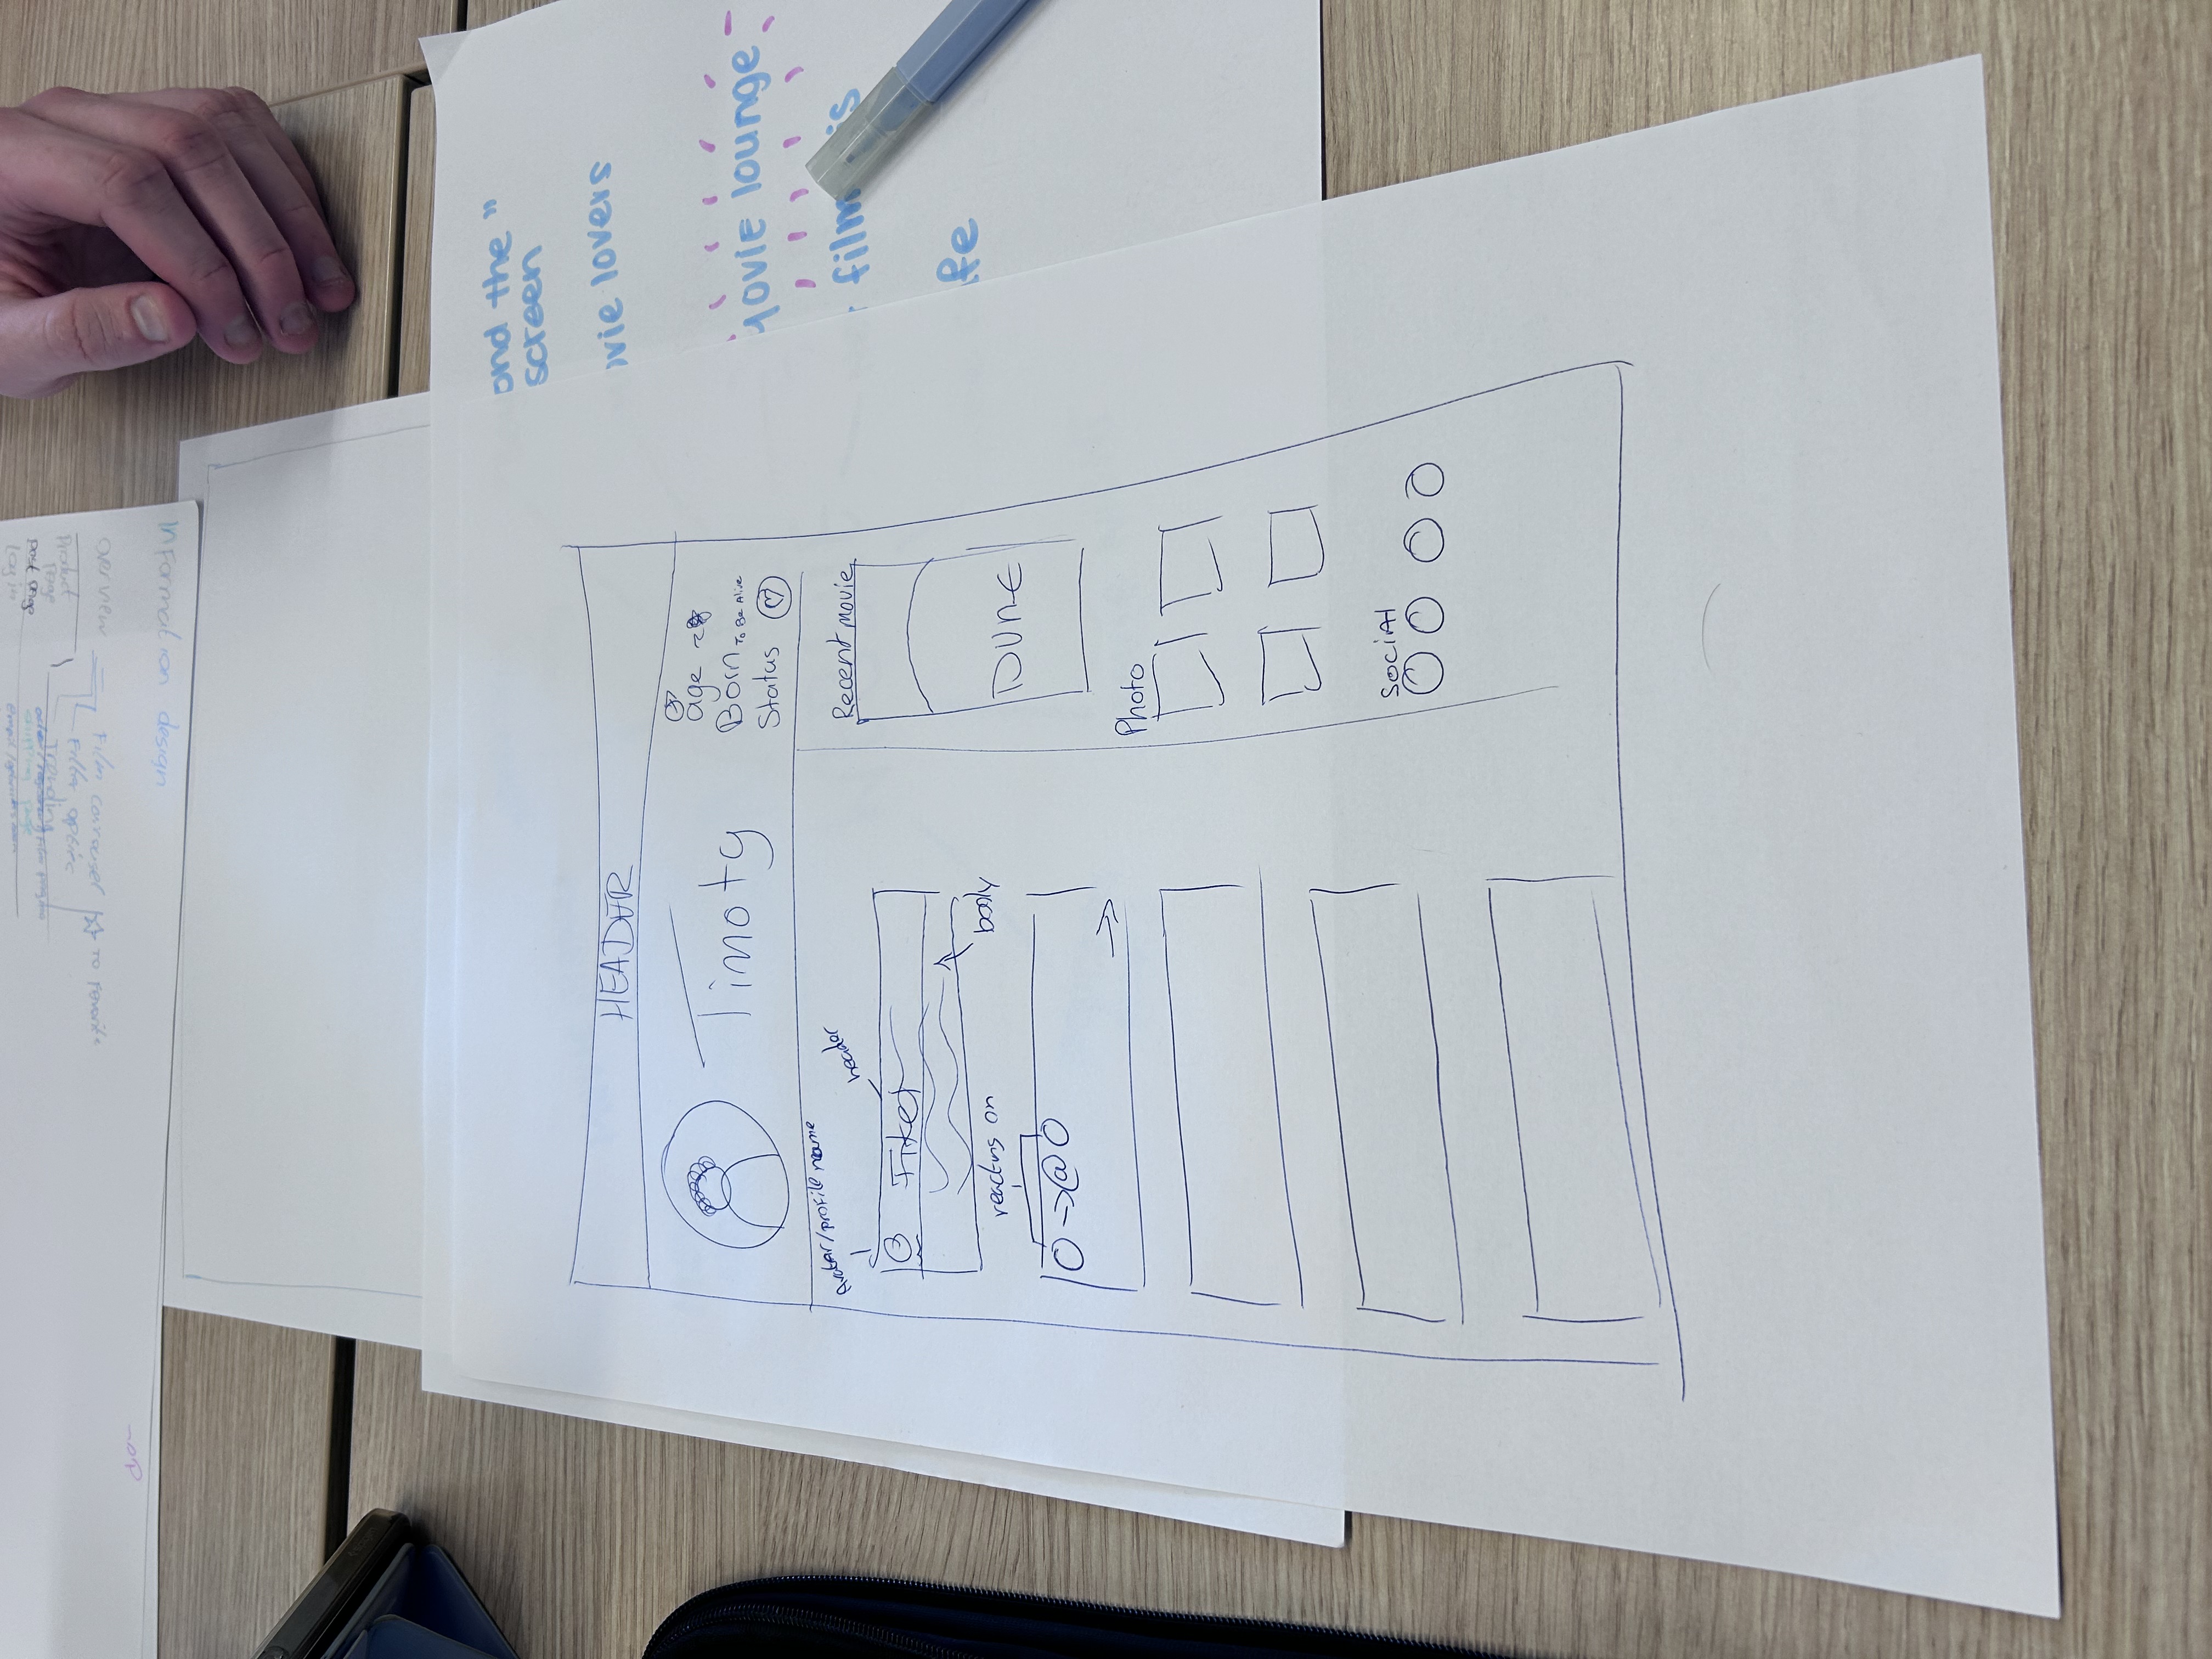 Information design
overview
Film carousel
to favorite
Filter optie
Product
page
Trending
post page
Log in
HEADER
Timoty
age
Born To Be Alive
Status
Avatar/profile name
header
body
reacting on
@
Recent movie
DUNE
Photo
SOCIAL
ond the "
screen
vie lovers
MOVIE lounge
film is
fe